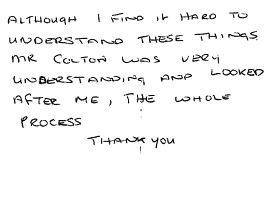 ALTHOUGH I FIND IT HARD TO
UNDERSTAND THESE THINGS.
MR COLTON WAS VERY
UNDERSTANDING AND LOOKED
AFTER ME, THE WHOLE
PROCESS
THANK YOU